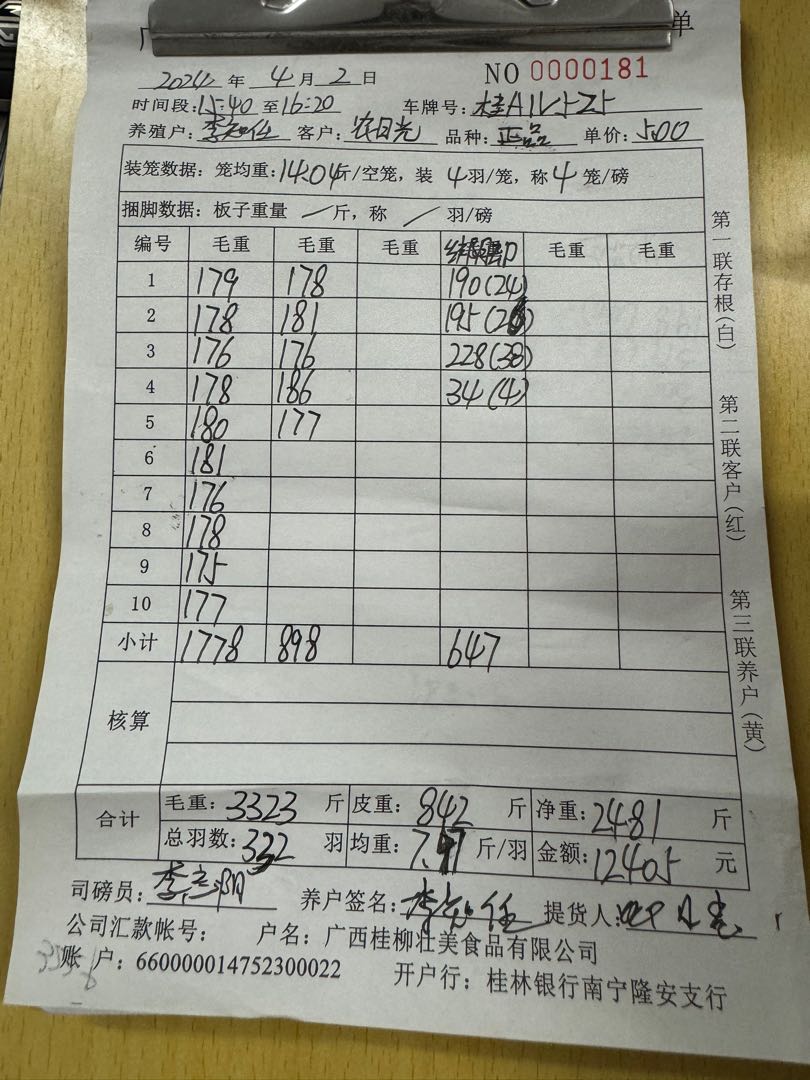 单
2024年4月2日 NO 0000181
时间段:15:40至16:20 车牌号:桂A
养殖户:李知任 客户:农日光 品种:正品 单价:5.00
装笼数据:笼均重:14.04斤/空笼,装4羽/笼,称4笼/磅
捆脚数据:板子重量/斤,称/羽/磅
编号 毛重 毛重 毛重 毛重 毛重
1 179 178 190(24)
2 178 181 195(26)
3 176 176 228(38)
4 178 186 34(4)
5 180 177
6 181
7 176
8 178
9 175
10 177
小计 1778 898 647
核算
合计 毛重:3323斤 皮重:842斤 净重:2481斤
总羽数:332羽 均重:7.47斤/羽 金额:12405元
司磅员: 养户签名:李知任 提货人:
公司汇款帐号: 户名:广西桂柳壮美食品有限公司
账户:660000014752300022 开户行:桂林银行南宁隆安支行
第一联存根(白)
第二联客户(红)
第三联养户(黄)